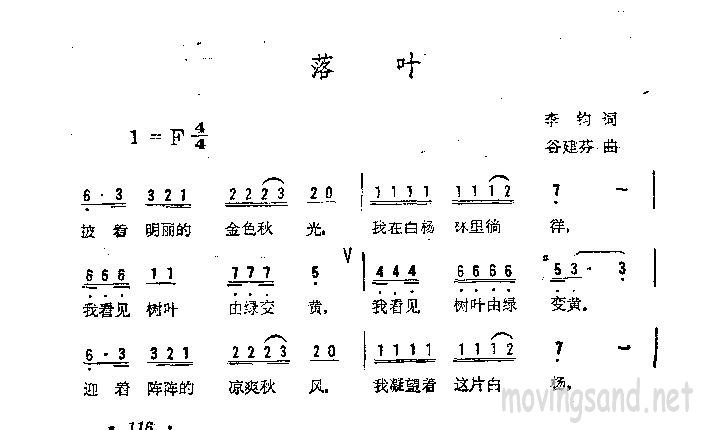 落 叶
1 = F 4/4
李钧 词
谷建芬 曲
6·3 321 2223 20 | 1111 1112 7 — |
披着 明丽的 金色秋 光。 我在白杨 林里徜 徉,
666 11 777 5 V | 444 6666 #53· 3 |
我看见 树叶 由绿变 黄, 我看见 树叶由绿 变黄。
6·3 321 2223 20 | 1111 1112 7 — |
迎着 阵阵的 凉爽秋 风。 我凝望着 这片白 杨,
· 116 ·
movingsand.net